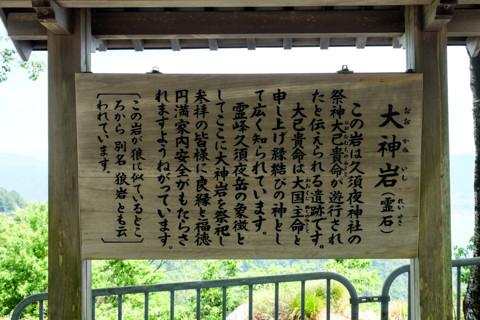 大神岩（霊石）
おおかみいし れいせき
この岩は久須夜神社の
祭神大己貴命が遊行され
たと伝えられる遺跡です。
大己貴命は大国主命と
申し上げ縁結びの神とし
て広く知られています。
霊峰久須夜岳の象徴と
してここに大神岩を祭祀し
参拝の皆様に良縁と福徳
円満家内安全がもたらさ
れますようねがっています。
この岩が狼に似ているとこ
ろから 別名 狼岩とも云
われています。